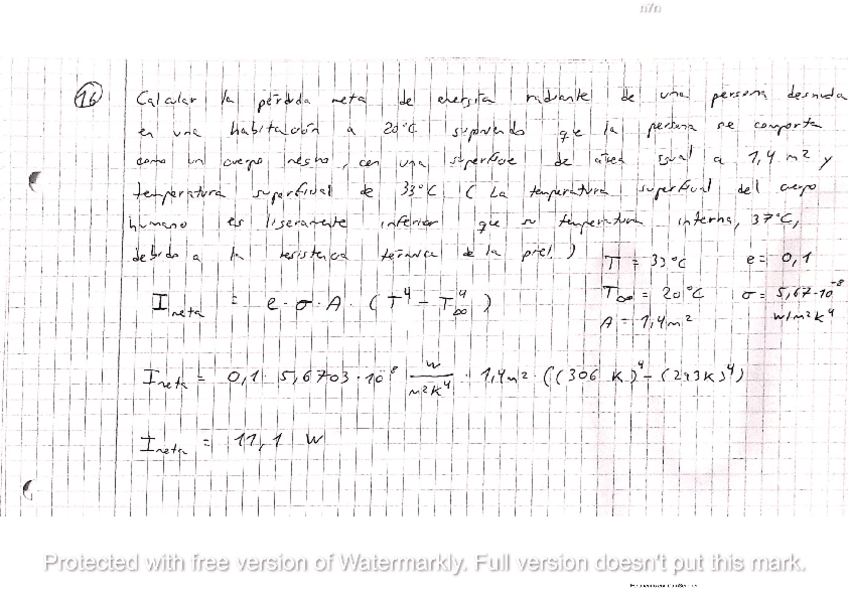 n/n
16 Calcular la pérdida neta de energía radiante de una persona desnuda
en una habitación a 20°C suponiendo que la persona se comporta
como un cuerpo negro, con una superficie de área igual a 1,4 m² y
temperatura superficial de 33°C. (La temperatura superficial del cuerpo
humano es ligeramente inferior que su temperatura interna, 37°C,
debido a la resistencia térmica de la piel.)
T = 33°C e = 0,1
I neta = e · σ · A · (T⁴ - T∞⁴)
T∞ = 20°C σ = 5,67·10⁻⁸
A = 1,4 m² W/m²K⁴
I neta = 0,1 · 5,6703 · 10⁻⁸ W/m²K⁴ · 1,4m² · ((306 K)⁴ - (293K)⁴)
I neta = 11,1 W
Protected with free version of Watermarkly. Full version doesn't put this mark.